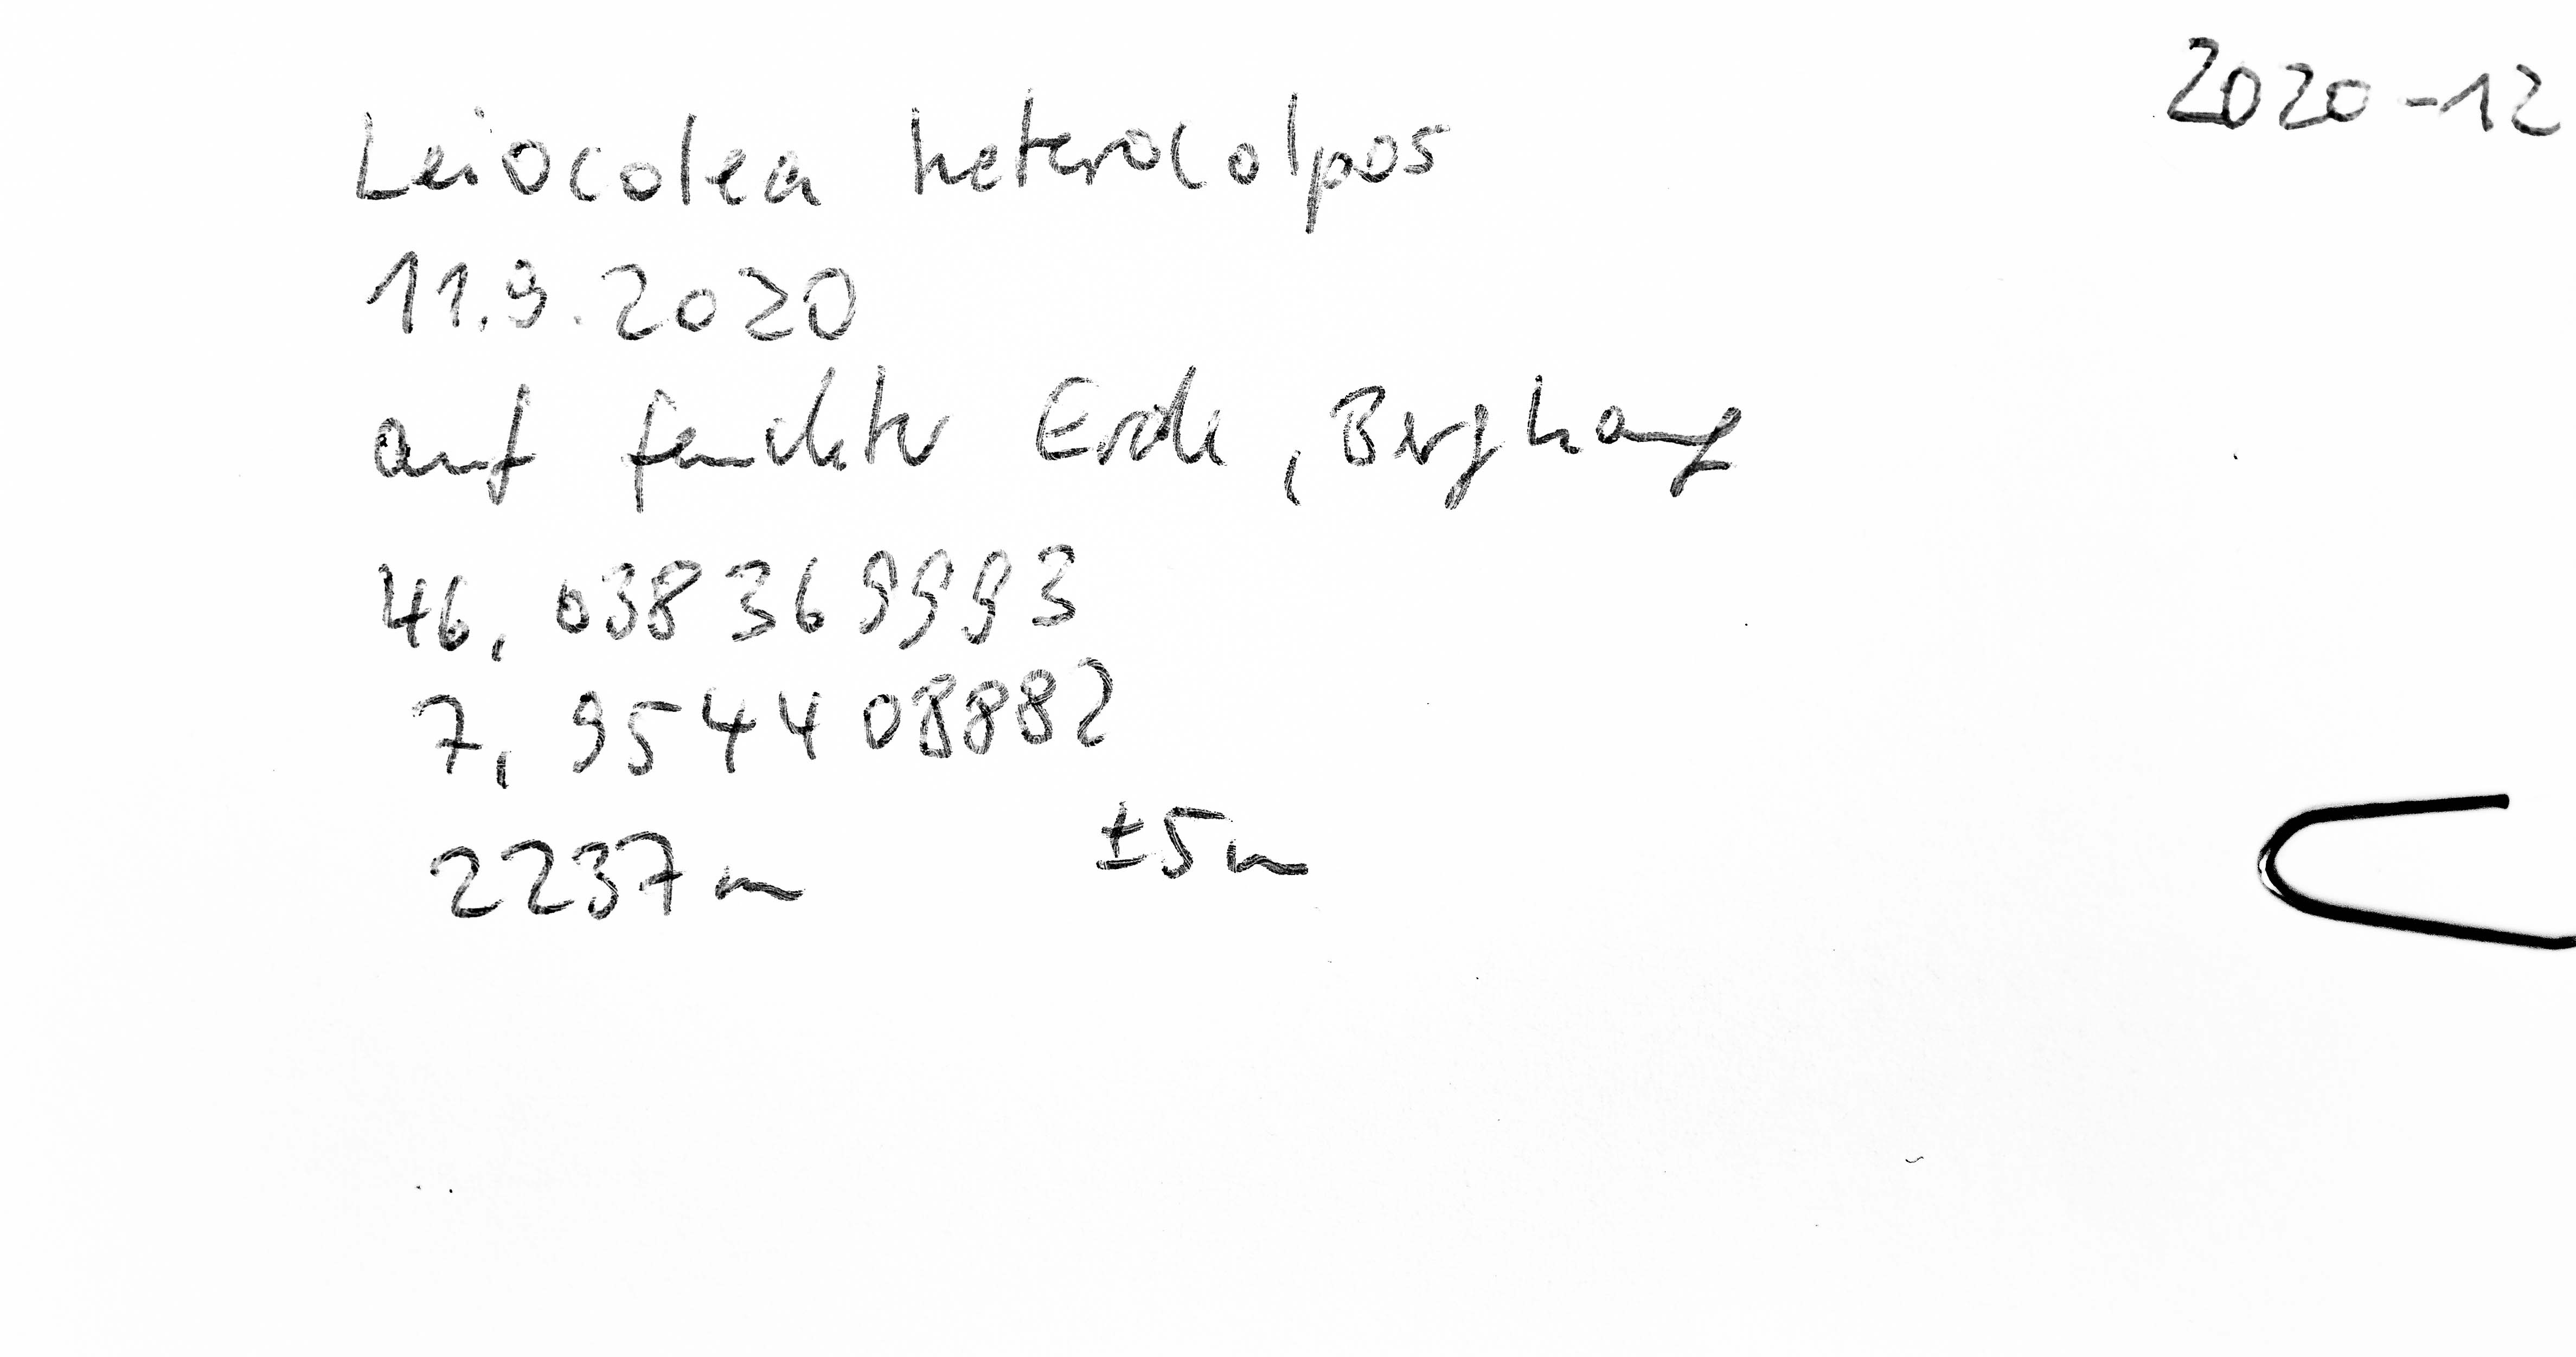 2020-12
Leiocolea heterocolpos
11.9.2020
auf feuchter Erde, Berghang
46,038369993
7,954408882
2237m ±5m